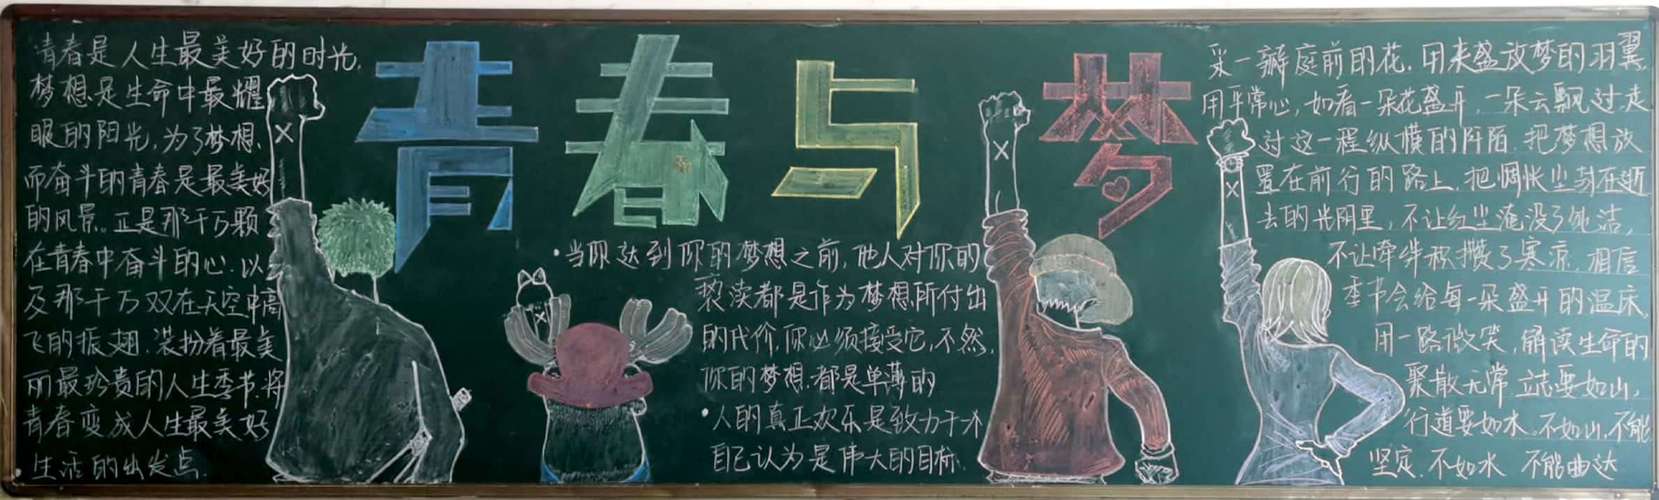 青春与梦
青春是人生最美好的时光,
梦想是生命中最耀
眼的阳光,为了梦想,
而奋斗的青春是最美好
的风景。正是那千万颗
在青春中奋斗的心,以
及那千万双在天空中高
飞的振翅,装扮着最美
丽最珍贵的人生季节,将
青春变成人生最美好
生活的出发点.
·当你达到你的梦想之前,他人对你的
亵渎都是作为梦想所付出
的代价,你必须接受它,不然,
你的梦想,都是单薄的
·人的真正欢乐是致力于
自己认为是伟大的目标.
采一瓣庭前的花,用来盛放梦的羽翼,
用平常心,如看一朵花盛开,一朵云飘过,走
过这一程纵横的阡陌.把梦想放
置在前行的路上,把惆怅尘封在逝
去的光阴里,不让红尘淹没了纯洁,
不让牵绊积攒了寒凉,相信
季节会给每一朵盛开的温床,
用一路微笑,解读生命的
聚散无常 志要如山,
行道要如水.不如山,不能
坚定.不如水 不能曲达